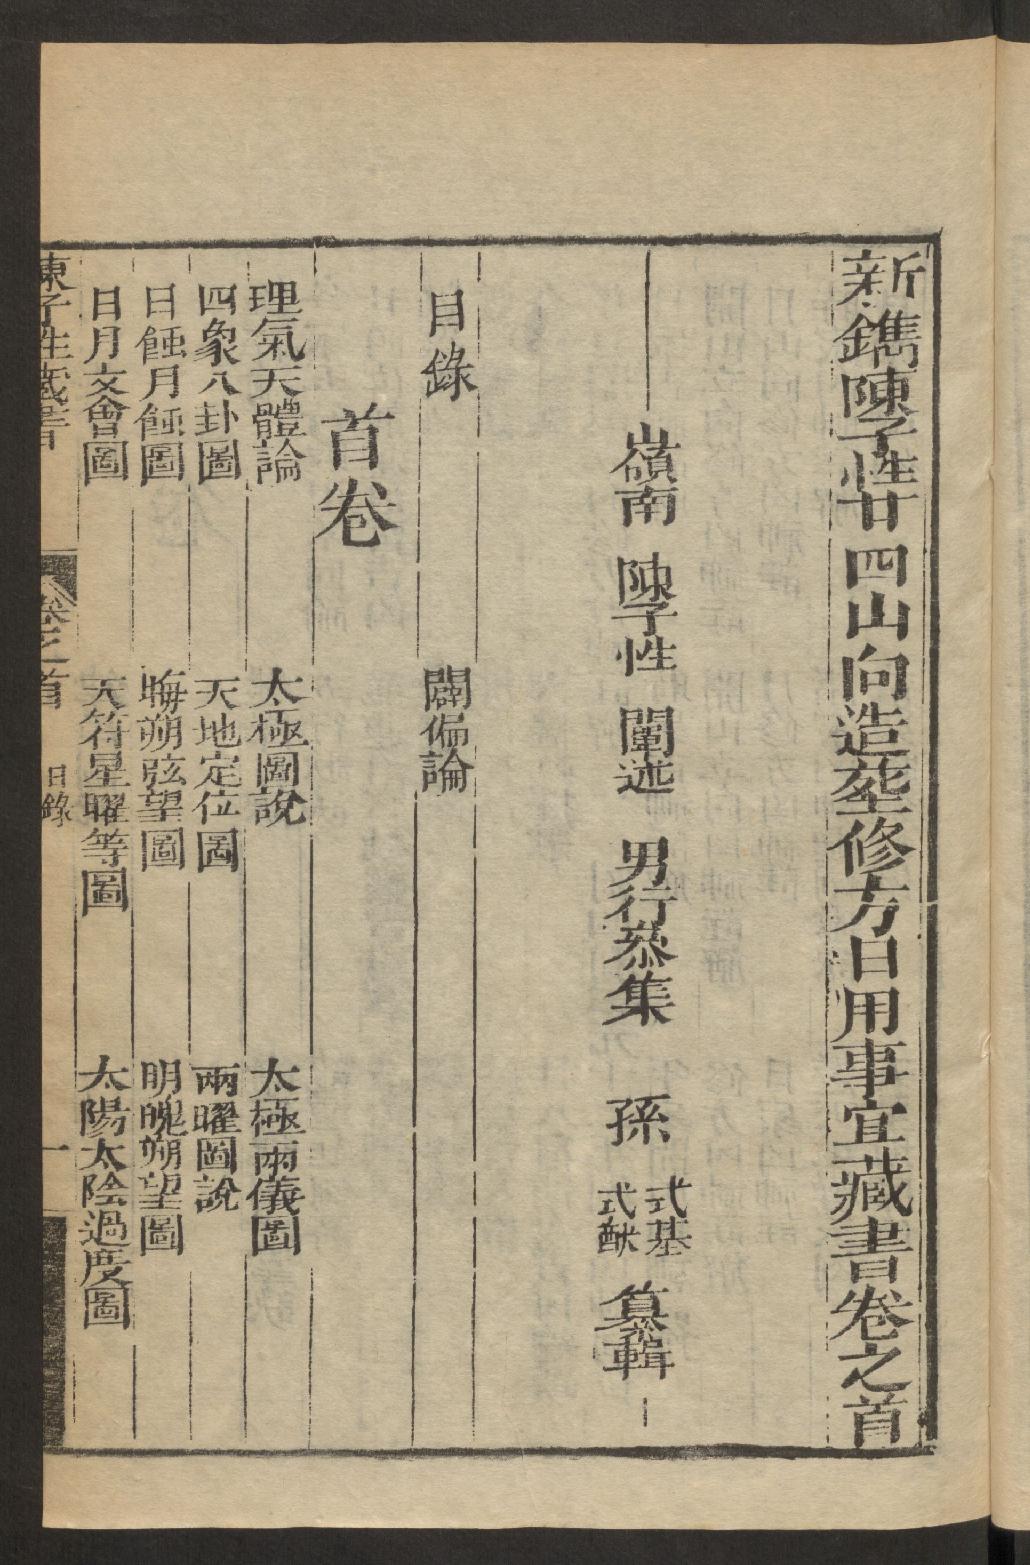 新鐫陳子性廿四山向造塟修方日用事宜藏書卷之首
嶺南 陳子性 闡述 男行恭集 孫 式基 式猷 纂輯
目錄 闢偏論
首卷
理氣天體論 太極圖說 太極兩儀圖
四象八卦圖 天地定位圖 兩曜圖說
日蝕月蝕圖 晦朔弦望圖 明魄朔望圖
日月交會圖 天符星曜等圖 太陽太陰過度圖
陳子性藏書 卷之首 目錄 一